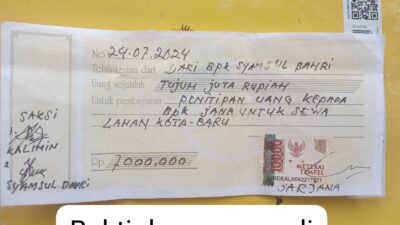 No. 24-07-2024
Telah terima dari DARI BPK SYAMSUL BAHRI
Uang sejumlah TUJUH JUTA RUPIAH
Untuk pembayaran PENITIPAN UANG KEPADA
BPK JANA UNTUK SEWA
LAHAN KOTA-BARU
Rp. 7000,000
SAKSI
1.
KALIMIN
2.
SYAMSUL BAHRI
10000
METERAI
TEMPEL
SARJANA